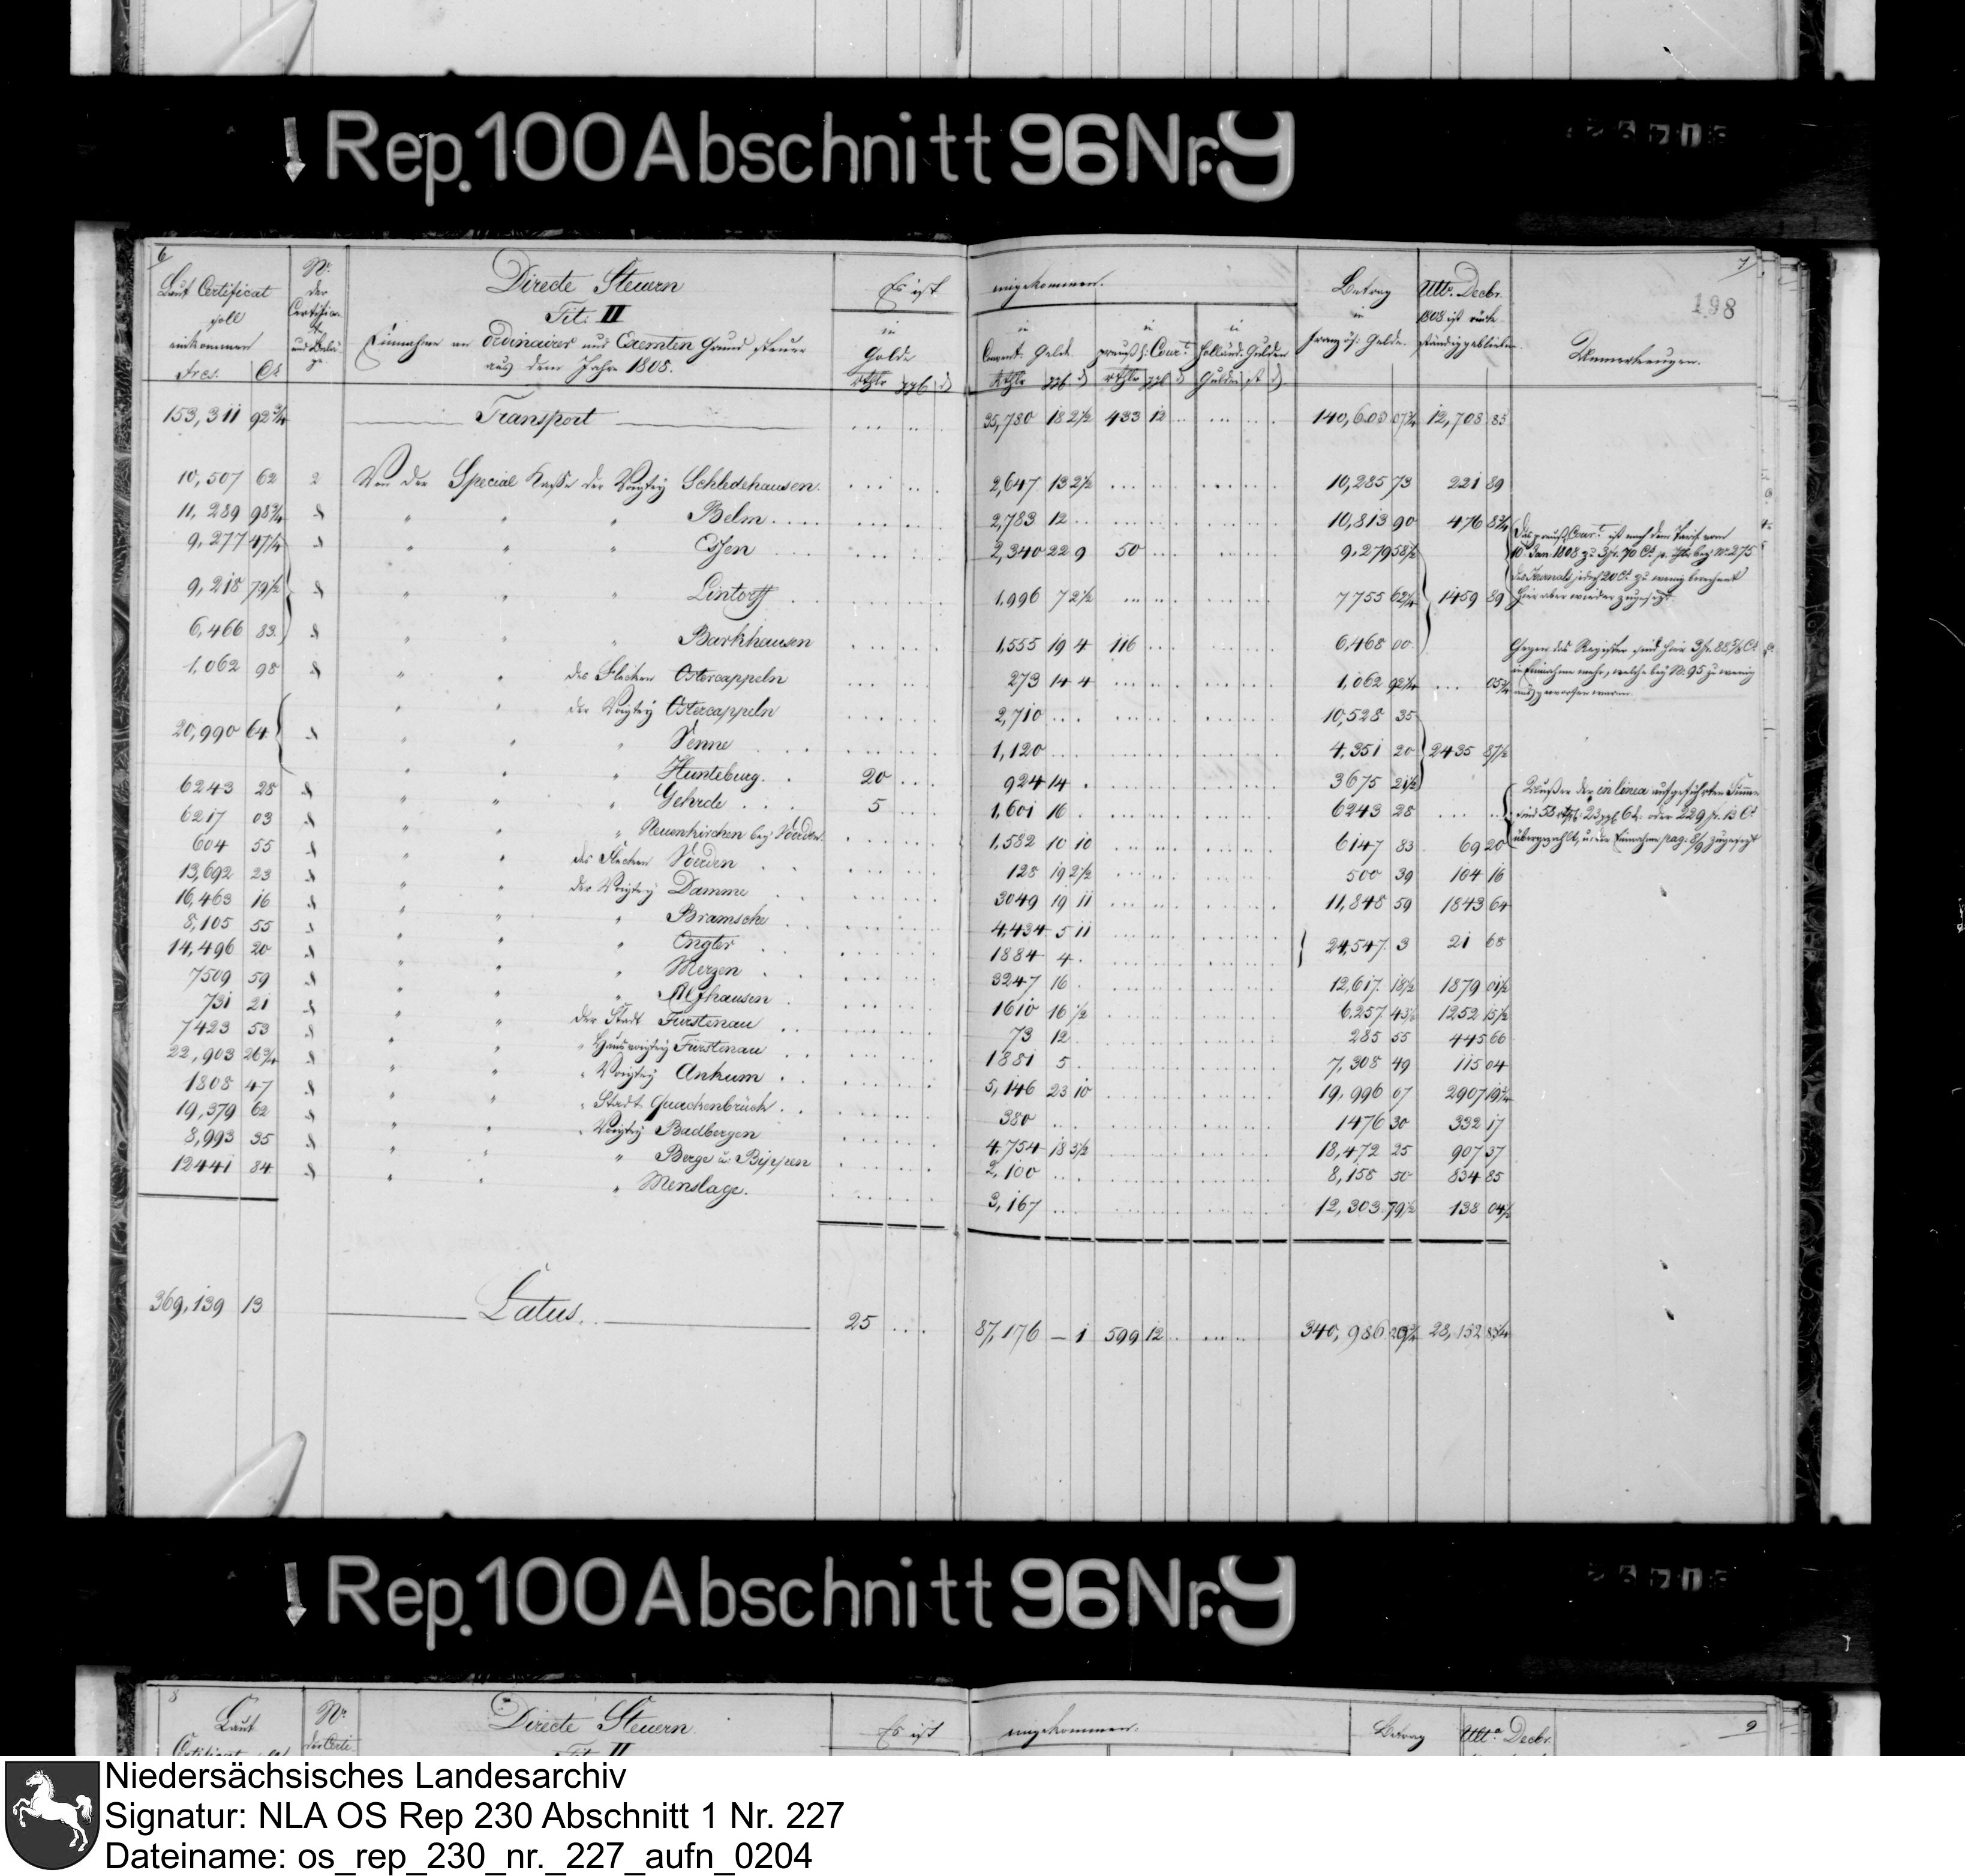 Rep. 100 Abschnitt 96 Nr. 9
6
Laut Certificat
soll
einkommen
Frcs. Ct
Nr.
der
Certifica-
te
und Belä-
ge.
Directe Steuern
Tit: II
Einnahme an Ordinairer und Exemten Grund steuer
aus dem Jahre 1808.
Es ist
in
Golde
Rthlr ggl d
eingekommen.
in
Convent. Gelde.
Rthlr ggl d
in
preuss: Cour.t
Rthlr ggl d
in
Holländ. Gulden
Gulden st d
Betrag
in
französ: Gelde.
Ulto. Decbr.
1808 ist rück-
ständig geblieben.
7
198
Anmerkungen.
153,311 92¾ Transport 35,780 18 2½ 433 12 140,603 07¾ 12,708 85
10,507 62 2 Von der Special Kasse der Voigtey Schledehausen. 2,647 13 2½ 10,285 73 221 89
11,289 98¾ " " " Belm 2,783 12 10,813 90 476 8¾
9,277 47¼ " " " Essen 2,340 22 9 50 9,279 58½
9,218 79½ " " " Lintorff 1,996 7 2½ 7755 62¼ 1459 89
6,466 83 " " " Barkhausen 1,555 19 4 116 6,468 00
1,062 98 " " des Flecken Ostercappeln 273 14 4 1,062 92¼ 05¾
" " der Voigtey Ostercappeln 2,710 10,528 35
20,990 64 " " " Venne 1,120 4,351 20 2435 87½
" " " Hunteburg. 20 924 14 3675 21½
6243 28 " " " Gehrde 5 1,601 16 6243 28
6217 03 " " " Neuenkirchen bey Vörden 1,582 10 10 6147 83 69 20
604 55 " " des Flecken Vörden 128 19 2½ 500 39 104 16
13,692 23 " " der Voigtey Damme 3049 19 11 11,848 59 1843 64
16,463 16 " " " Bramsche 4,434 5 11
8,105 55 " " " Engter 1884 4 24,547 3 21 68
14,496 20 " " " Merzen 3247 16 12,617 18½ 1879 01½
7509 59 " " " Alfhausen 1610 16 ½ 6,257 43½ 1252 15½
731 21 " " der Stadt Fürstenau 73 12 285 55 445 66
7423 53 " " " Hausvoigtey Fürstenau 1881 5 7,308 49 115 04
22,903 26¾ " " " Voigtey Ankum 5,146 23 10 19,996 07 2907 19¾
1808 47 " " " Stadt Quackenbrück 380 1476 30 332 17
19,379 62 " " " Voigtey Badbergen 4,754 18 3½ 18,472 25 907 37
8,993 35 " " " Berge u: Bippen 2,100 8,158 50 834 85
12441 84 " " " Menslage. 3,167 12,303 79½ 138 04½
369,139 13 Latus. 25 87,176 – 1 599 12 340,986 28,152 85¼
Das preuss. Cour.t ist nach dem Tarif vom
10 Jan: 1808 zu 3 fr. 70 Ct p. Thlr. bey No 275
des Journals jedoch 20 Ct. zu wenig berechnet
hier aber wieder zugesezt.
Gegen das Register sind hier 3 fr. 88⅝ Ct
in Einnahme mehr, welche bey No. 95 zu wenig
ausgeworfen waren.
Ausser der in linea aufgeführten Summe
sind 58 Rthlr. 23 ggl. 6 d. oder 229 fr. 13 Ct
überzahlt, Einnahme pag. 8/9 zugesezt
Rep. 100 Abschnitt 96 Nr. 9
8
Laut
Certificat
Nr.
der Certi
Directe Steuern.
Tit. II
Es ist
eingekommen.
Betrag
Ulto. Decbr.
9
Niedersächsisches Landesarchiv
Signatur: NLA OS Rep 230 Abschnitt 1 Nr. 227
Dateiname: os_rep_230_nr._227_aufn_0204